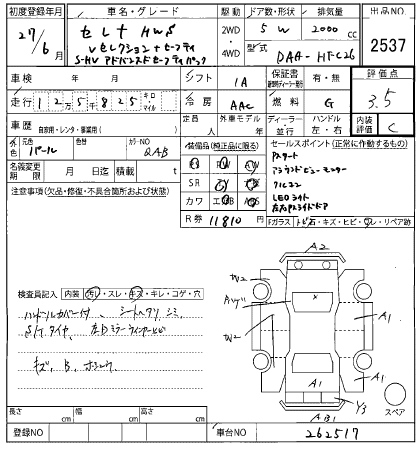 初度登録年月 車名・グレード 駆動 ドア数・形状 排気量 出品NO
27/6月 セレナ HWS 2WD・4WD 5 W 2000cc 2537
Vセレクション+セーフティ
S-HV アドバンスドセーフティパック 型式 DAA-HFC26
車検 年 月 シフト IA 保証書 有・無 評価点
走行 12万5千825 キロ・マイル 冷房 AAC 燃料 G 3.5
車歴 自家用・レンタ・事業用( ) 定員 人 外車モデル 年 ディーラー 並行 ハンドル 左・右 内装評価 C
外色 元色 パール 色替 カラーNO QAB
装備品(純正品に限る) セールスポイント(正常に作動するもの)
名義変更期限 月 日迄 積載 t
SR TV ナビ
カワ エアB ABS
R券 11810円
注意事項(欠品・修復・不具合箇所および状態)
Pスタート
アラウンドビューモニター
クルコン
LEDライト
左右Pスライドドア
Fガラス トビ石・キズ・ヒビ・ワレ・リペア跡
検査員記入 内装 汚レ・スレ・キズ・キレ・コゲ・穴
ハンドルカバー付、シートヘタリ シミ
S/Tタイヤ
キズ、B、
A2
W2
W2
A1
A1
A1
Y3
AB1
スペア
長さ cm 幅 cm 高さ cm
登録NO 車台NO 262517